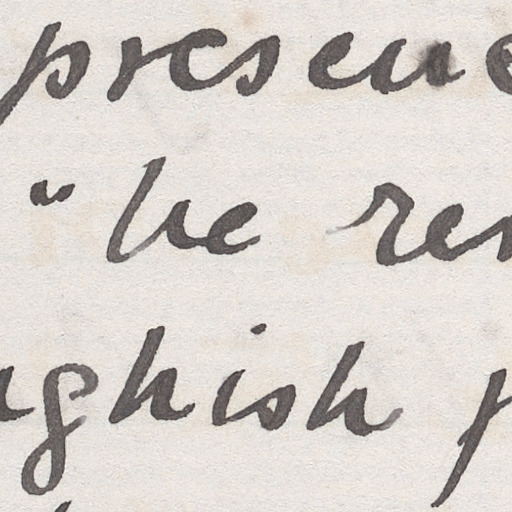 presenc
"he ren
nglish p